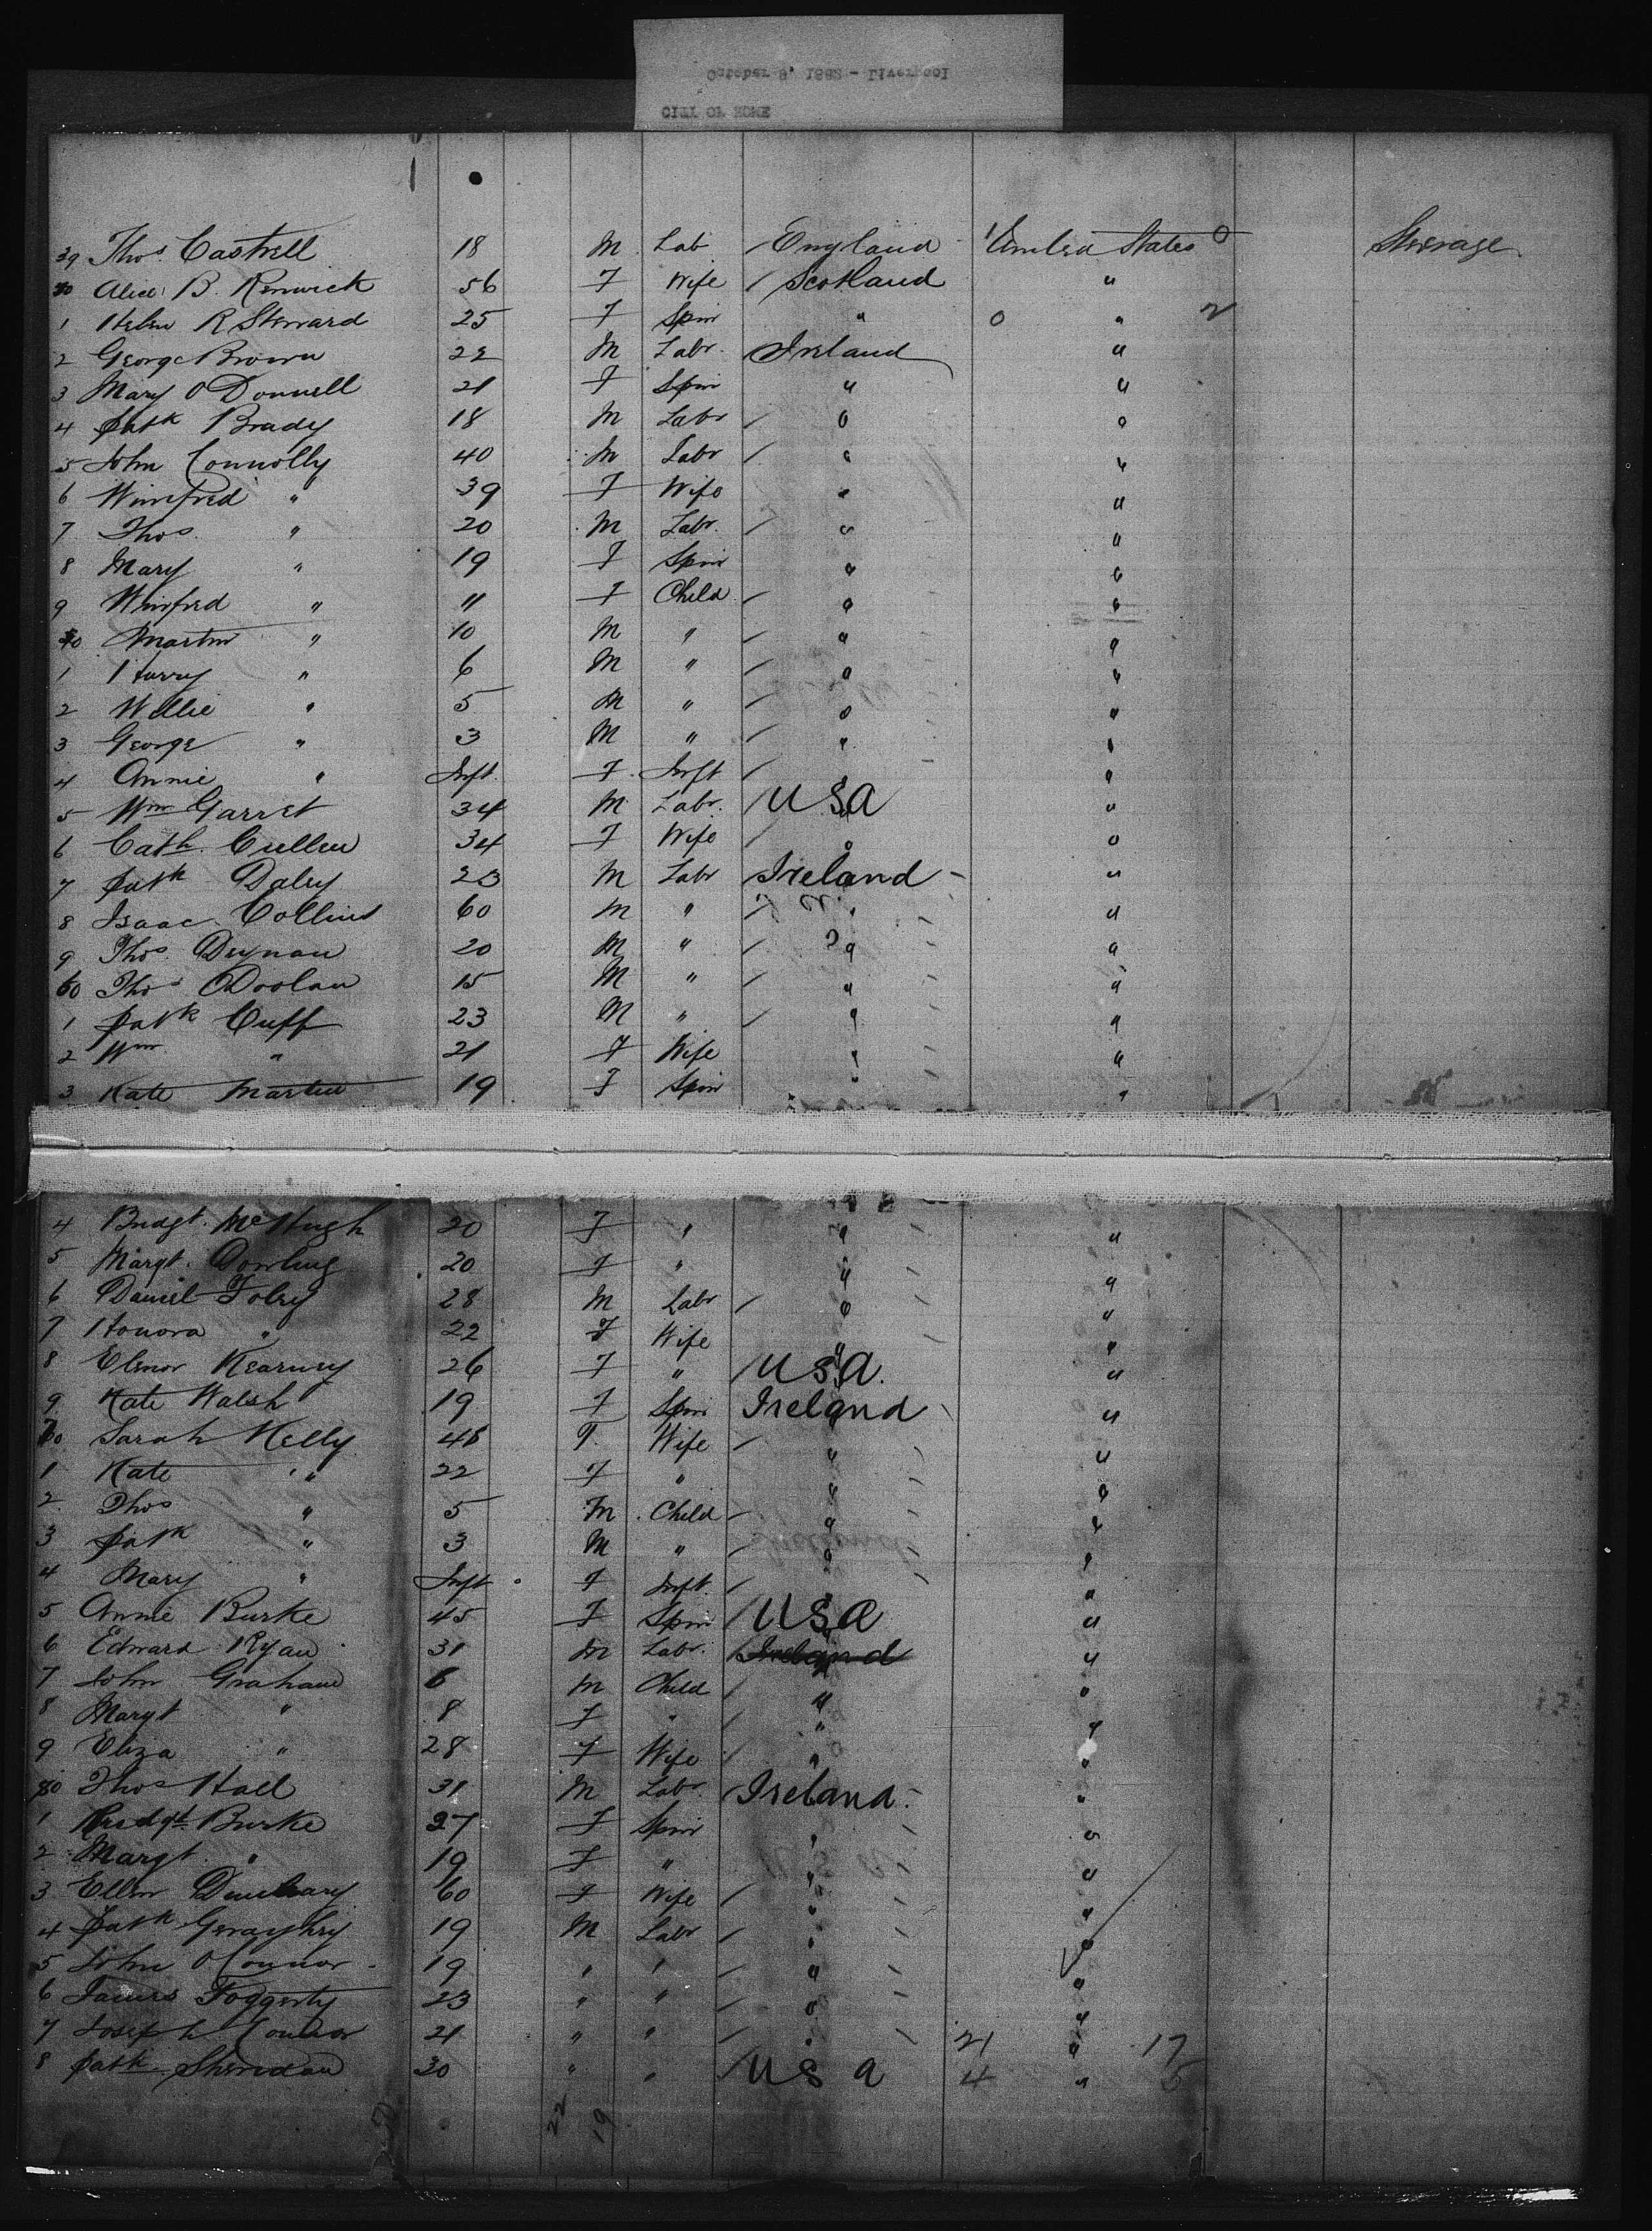 October 8, 1882 - Liverpool
CITY OF ROME
39 Thos. Castrell 18 M Lab England United States 0 Steerage
40 Alice B. Renwick 56 F Wife Scotland "
1 Helen R Steward 25 F Spin " 0 " 2
2 George Brown 22 M Labr. Ireland "
3 Mary O Donnell 21 F Spin " "
4 Patk Brady 18 M Labr " "
5 John Connolly 40 M Labr " "
6 Winifred " 39 F Wife " "
7 Thos. " 20 M Labr. " "
8 Mary " 19 F Spin " "
9 Winifred " 11 F Child " "
50 Martin " 10 M " " "
1 Harry " 6 M " " "
2 Willie " 5 M " " "
3 George " 3 M " " "
4 Annie " Inft. F. Inft "
5 Wm Garret 34 M Labr. USA "
6 Cath. Cullen 34 F Wife " "
7 Patk Daley 23 M Labr Ireland "
8 Isaac Collins 60 M " " "
9 Thos. 20 M " " "
60 Thos Doolan 15 M " " "
1 Patk Cuff 23 M " " "
2 Wm " 21 F Wife " "
3 Kate Martin 19 F Spin " "
4 Bridgt. McHugh 20 F " " "
5 Margt. Dowling 20 F " " "
6 Daniel Foley 28 M Labr " "
7 Honora " 22 F Wife " "
8 Elenor Kearney 26 F " USA. "
9 Kate Walsh 19 F Spin Ireland "
70 Sarah Kelly 45 F. Wife " "
1 Kate " 22 F " " "
2 Thos " 5 M. Child " "
3 Patk " 3 M " " "
4 Mary " Inft F Inft. "
5 Annie Burke 45 F Spin USA "
6 Edward Ryan 31 M Labr. Ireland "
7 John Graham 6 M Child " "
8 Margt " 8 F " " "
9 Eliza " 28 F Wife " "
80 Thos Hall 31 M Labr Ireland. "
1 Bridgt Burke 27 F Spin " "
2 Margt. " 19 F " " "
3 Ellen 60 F Wife " "
4 Patk Geraghty 19 M Labr " "
5 John O Connor 19 " " " "
6 James Foggerty 23 " " " "
7 Joseph Connor 21 " " " 21 " 17
8 Patk. Sheridan 30 " " USA 4 " 5
22 19